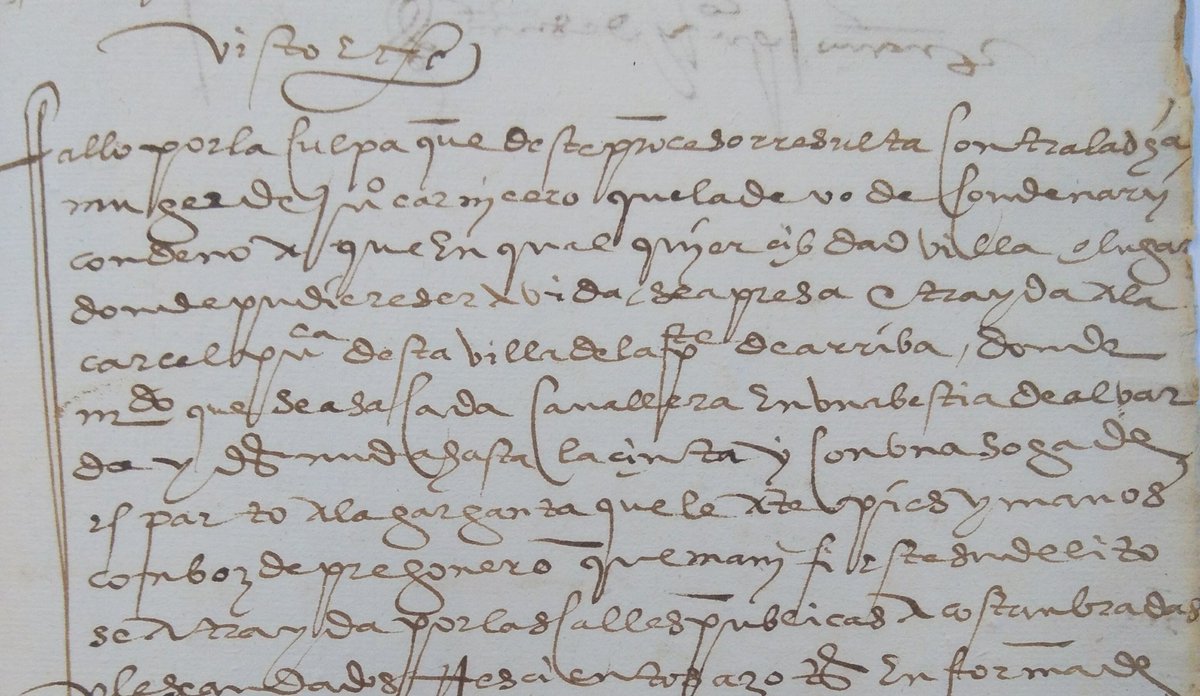 Visto etc
fallo por la culpa que deste proceso rresulta contra la dha
muger de Juº carnicero que la devo de condenar y
condeno a que en qual quier cibdad villa o lugar
donde pudiere ser avida sea presa e trayda a la
carcel puca desta villa de la fte de arriba, donde
mdo que sea sacada cavallera en una bestia de alvar
da y desnuda hasta la çinta y con una soga de
esparto a la garganta que le ate pies y manos
con boz de pregonero que manifieste su delito
sea trayda por las calles publicas acostumbradas
y le sean dados azotes en forma de